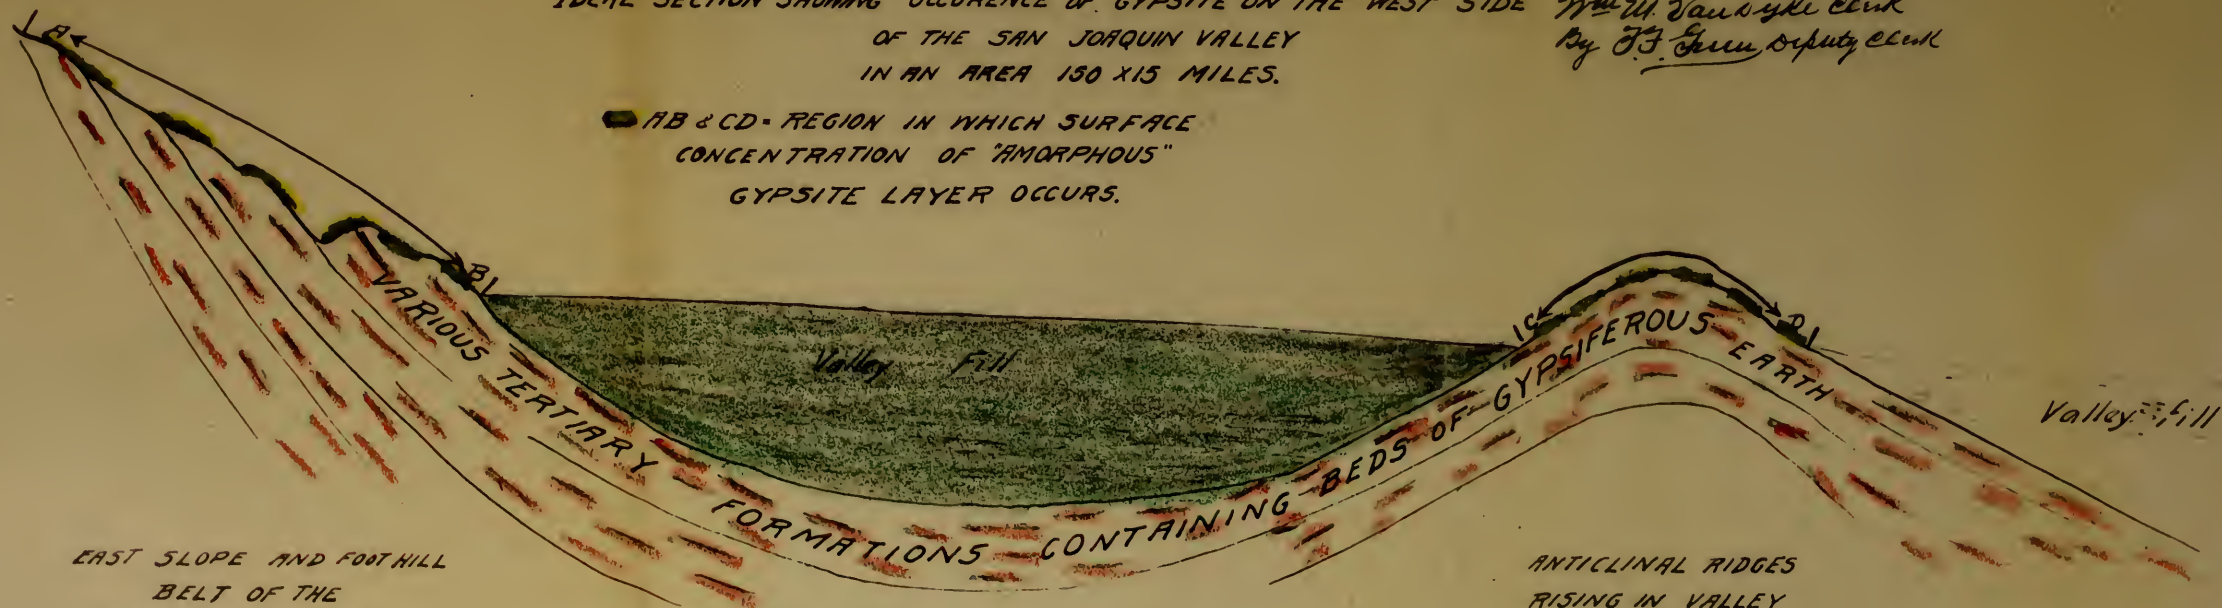 IDEAL SECTION SHOWING OCCURENCE OF GYPSITE ON THE WEST SIDE
OF THE SAN JOAQUIN VALLEY
IN AN AREA 150 X 15 MILES.
Wm M. Van Dyke Clerk
By F.F. Green, Deputy Clerk
AB & CD = REGION IN WHICH SURFACE
CONCENTRATION OF "AMORPHOUS"
GYPSITE LAYER OCCURS.
A
B
C
D
Valley Fill
VARIOUS TERTIARY FORMATIONS CONTAINING BEDS OF GYPSIFEROUS EARTH
Valley fill
EAST SLOPE AND FOOT HILL
BELT OF THE
ANTICLINAL RIDGES
RISING IN VALLEY